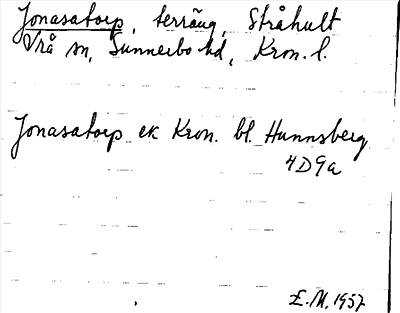 Jonasatorp, terräng, Stråhult
Vrå sn, Sunnerbo hd, Kron. l.
Jonasatorp ek Kron. bl. Hunnsberg
4D9a
E.M. 1957